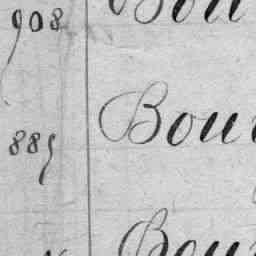 908 Bou
885 Bou
Bou